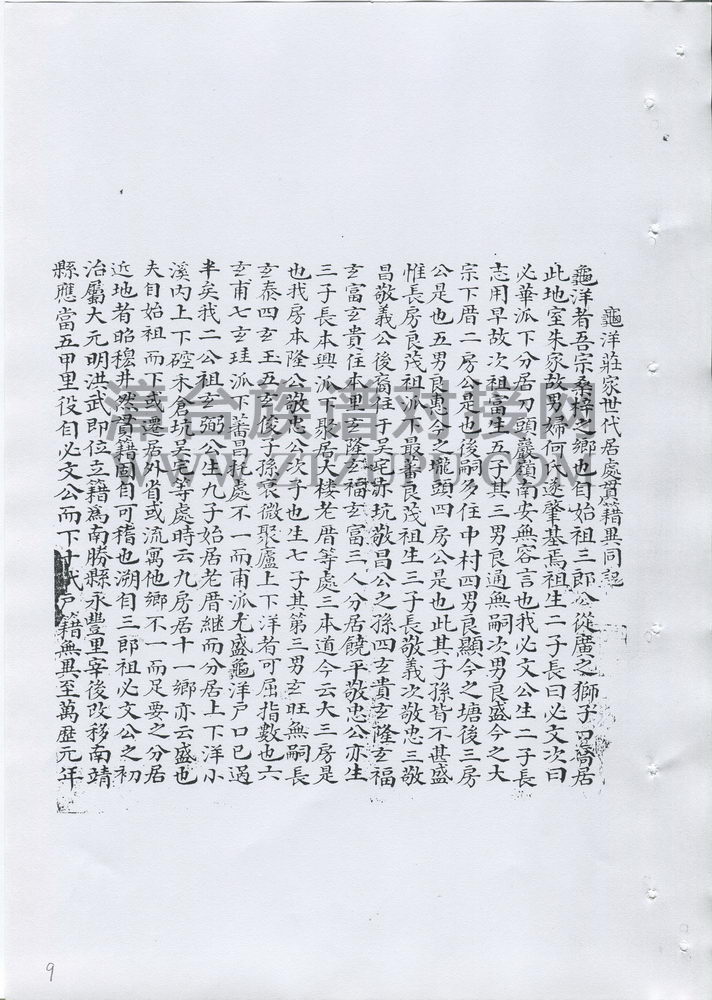 龜洋莊家世代居處貫籍異同記
龜洋者吾宗桑梓之鄉也自始祖三郎公從廣之獅子口喬居
此地室朱家故男婦何氏遂肇基焉祖生二子長曰必文次曰
必華派下分居刀頭嚴嶺南安無容言也我必文公生二子長
志用早故次祖富生五子其三男良通無嗣次男良盛今之大
宗下厝二房公是也後嗣多住中村四男良顯今之塘後三房
公是也五男良惠今之壠頭四房公是也此其子孫皆不甚盛
惟長房良茂祖派下最蕃良茂祖生三子長敬義次敬忠三敬
昌敬義公後裔住于吳宅赤坑敬昌公之孫四玄貴玄隆玄福
玄富玄貴住本里玄隆玄福玄富三人分居饒平敬忠公亦生
三子長本興派下聚居大楼老厝等處三本道今云大三房是
也我房本隆公敬忠公次子也生七子其第三男玄旺無嗣長
玄泰四玄玉五玄俊子孫衰微聚廬上下洋者可屈指數也六
玄甫七玄珪派下蕃昌托處不一而甫派尤盛龜洋戶口已過
半矣我二公祖玄弼公生九子始居老厝継而分居上下洋小
溪內上下硿末倉坑吳宅等處時云九房居十一鄉亦云盛也
夫自始祖而下或遷居外省或流寓他鄉不一而足要之分居
近地者昭穆井然貫籍固自可稽也溯自三郎祖必文公之初
治屬大元明洪武即位立籍為南勝縣永豐里宰後改移南靖
縣應當五甲里役自必文公而下十代戶籍無異至萬歷元年
津台族谱对接网
WWW.ZTZUPU.COM
9